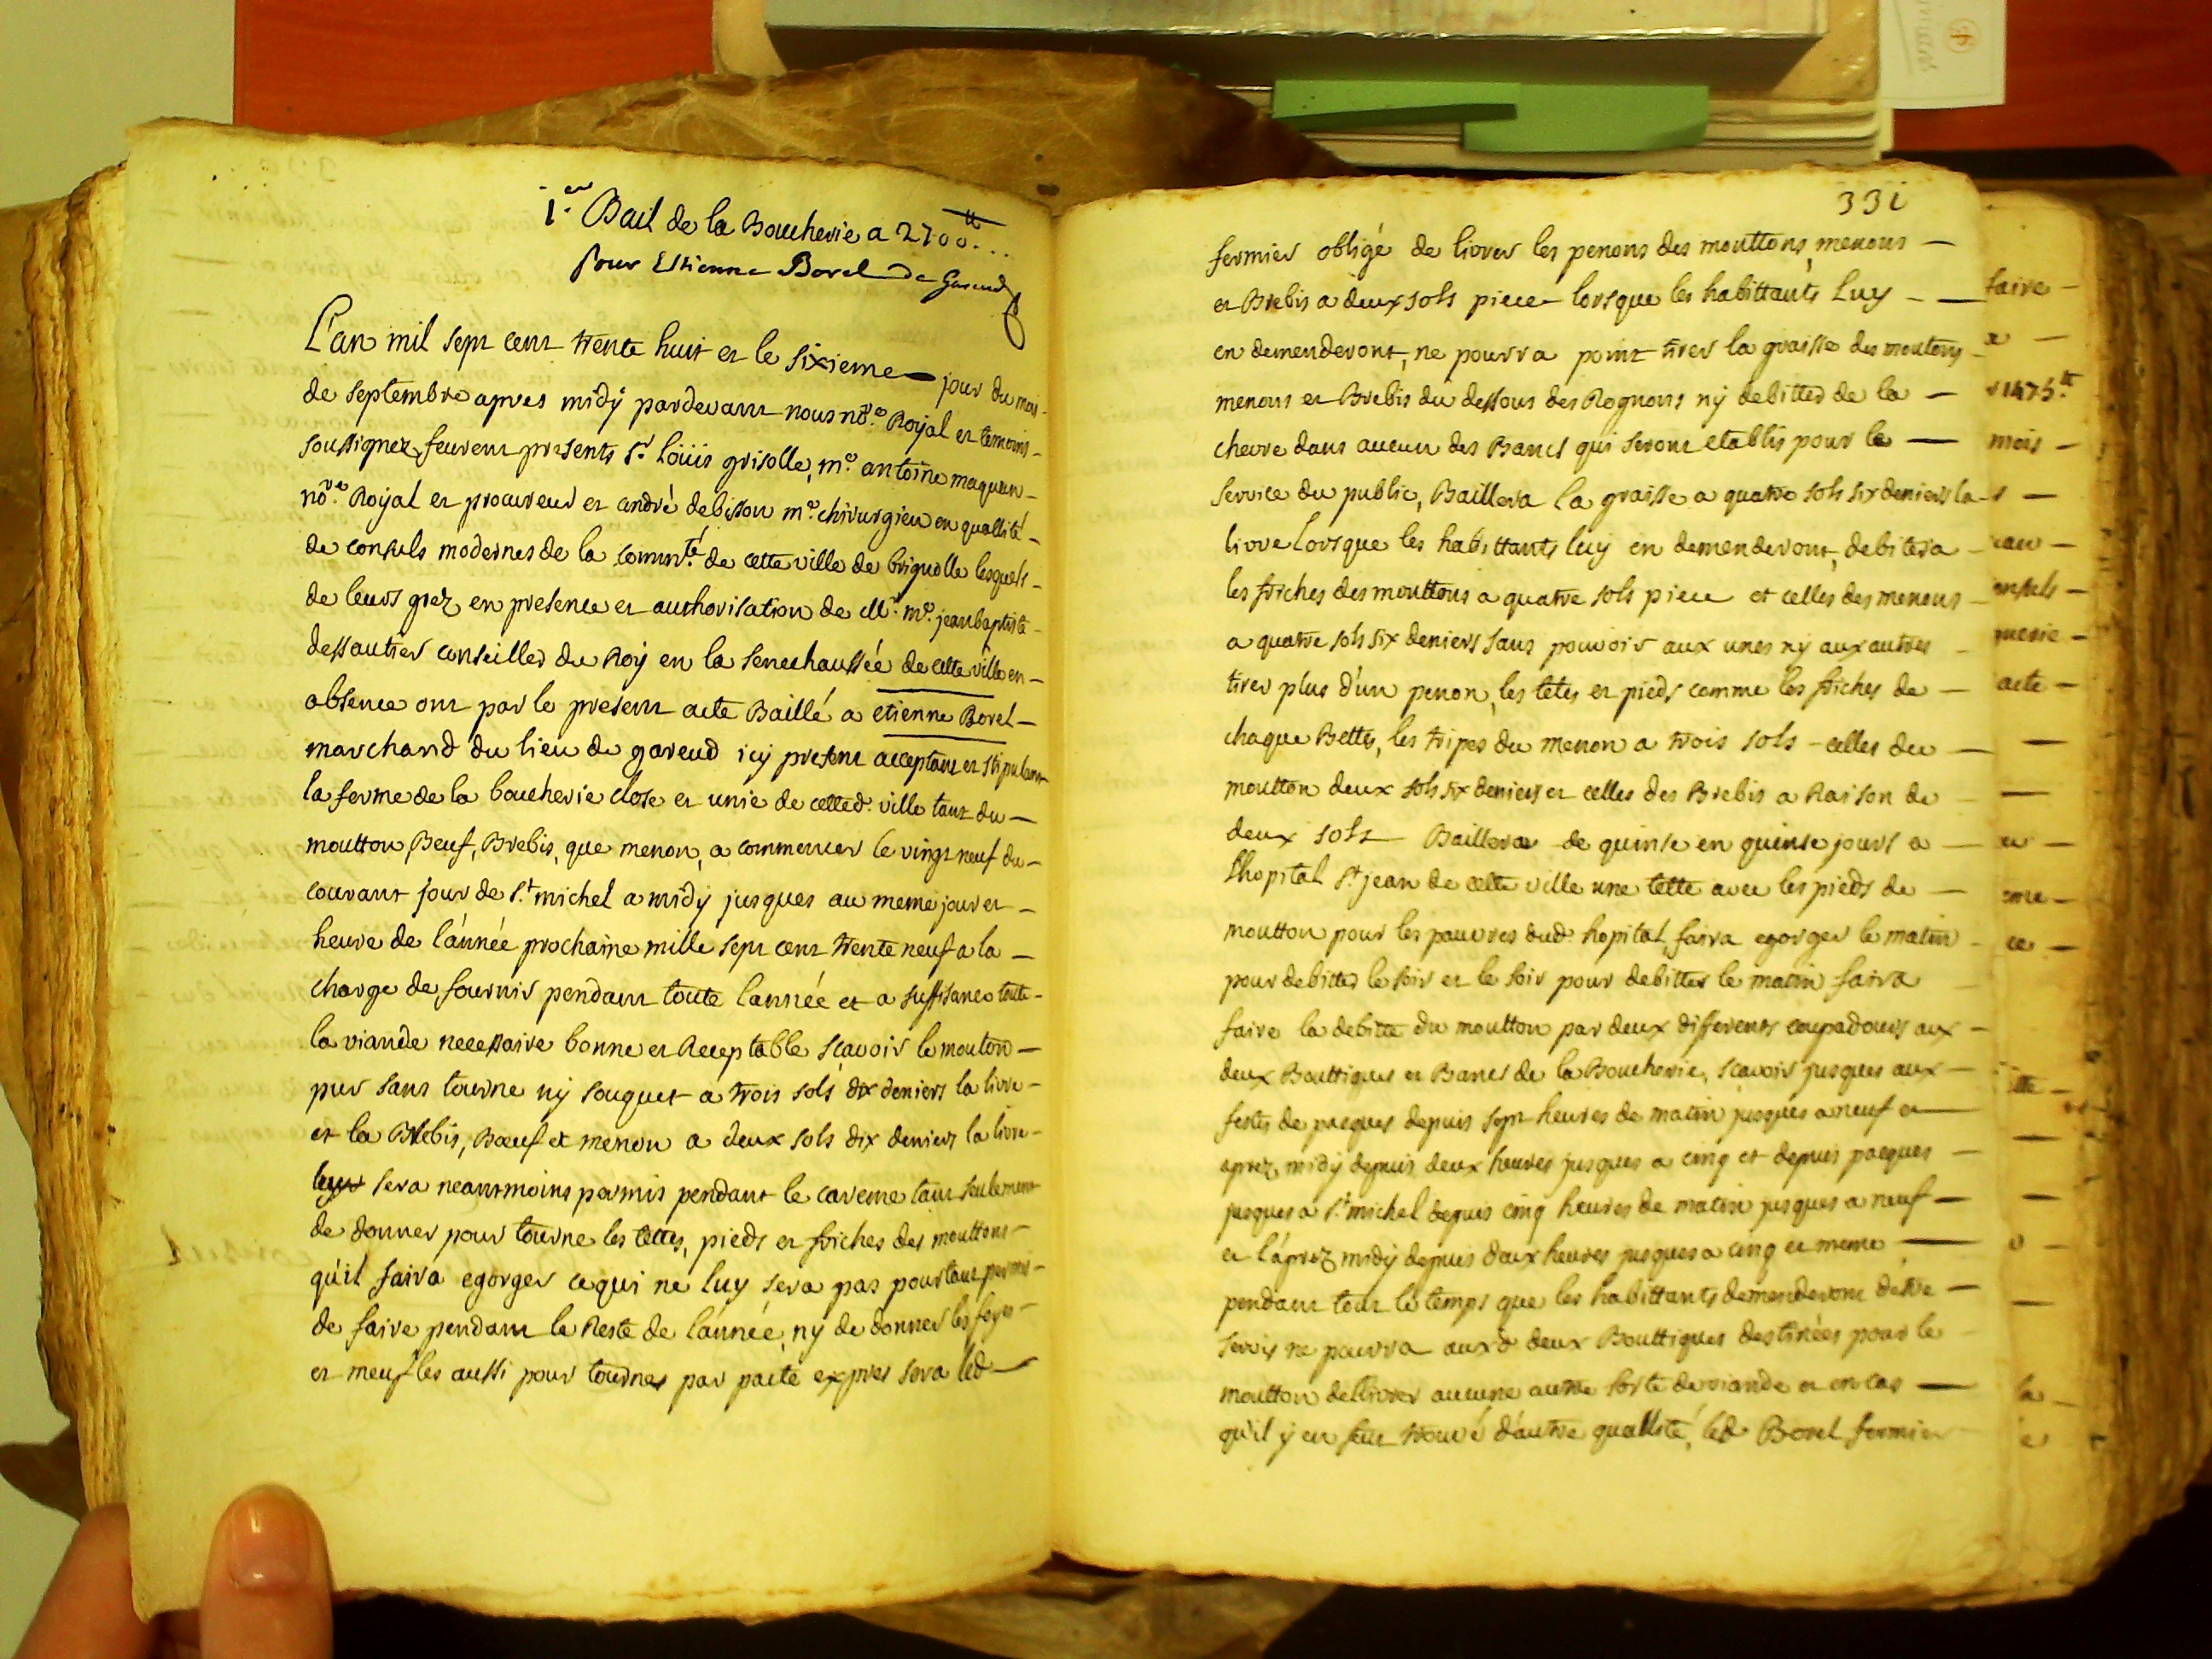 1.er Bail de la Boucherie a 2700.tt
pour Estienne Borel de Gareud
L'an mil sept cent trente huit et le sixieme jour du mois
de septembre apres midÿ pardevant nous no.re Roÿal et temoins
soussignez feurent presents s.r Loüis grisolle, m.e antoine maquan
no.re Roÿal et procureur et andré debisson m.e chirurgien en quallité
de consuls modernes de la commu.té de cette ville de brignolle lesquels
de leurs grez en presence et authorisation de M.r m.e jean baptiste
dessautier conseiller du Roÿ en la senechaussée de cette ville en
absence ont par le present acte Baillé a etienne Borel
marchand du lieu de gareud icy present acceptant et stipulant
la ferme de la boucherie close et unie de cetted. ville tant du
moutton, Beuf, Brebis, que menon, a commencer le vingt neuf du
courant jour de s.t michel a midÿ jusques au meme jour et
heure de l'année prochaine mille sept cent trente neuf a la
charge de fournir pendant toute l'année et a suffisance toute
la viande necessaire bonne et Receptable scavoir le mouton
pur sans tourne nÿ souquet a trois sols dix deniers la livre
et la Brebis, Bœuf et menon a deux sols dix deniers la livre
luy sera neantmoins permis pendant le careme tant seulement
de donner pour tourne les tettes, pieds et friches des mouttons
qu'il faira egorger ce qui ne luy sera pas pourtant permis
de faire pendant le Reste de l'année, nÿ de donner les foyes
et meufles aussi pour tournes par pacte expres sera led
331
fermier obligé de livrer les penons des mouttons, menons
et Brebis a deux sols piece lorsque les habittants Luy
en demenderont, ne pourra point tirer la graisse des moutons
menons et Brebis du dessous des Rognons nÿ debitter de la
chevre dans aucun des Bancs qui seront etablis pour le
service du public, Baillera la graisse a quatre sols six deniers la
livre Lorsque les habittants luÿ en demenderont, debitera
les friches des mouttons a quatre sols piece et celles des menons
a quatre sols six deniers sans pouvoir aux unes nÿ aux autres
tirer plus d'un penon, les tetes et pieds comme les friches de
chaque Bette, les tripes du menon a trois sols celles du
moutton deux sols six deniers et celles des Brebis a Raison de
deux sols Baillera de quinse en quinse jours a
l'hopital s.t jean de cette ville une tette avec les pieds de
moutton pour les pauvres dud. hopital, faira egorger le matin
pour debitter le soir et le soir pour debitter le matin faira
faire la debitte du moutton par deux differents coupadours aux
deux Bouttiques et Bancs de la Boucherie, scavoir jusques aux
festes de pacques depuis sept heures de matin jusques a neuf et
aprez midÿ depuis deux heures jusques a cinq et depuis pacques
jusques a s.t michel depuis cinq heures de matin jusques a neuf
et l'aprez midÿ depuis deux heures jusques a cinq et meme
pendant tout le temps que les habittants demenderont d'etre
servis ne pourra auxd. deux Bouttiques destinées pour le
moutton dellivrer aucune autre sorte de viande et en cas
qu'il ÿ en feut trouvé d'autre quallité, led. Borel fermier
faire
1475.tt
mois
onsuls
acte